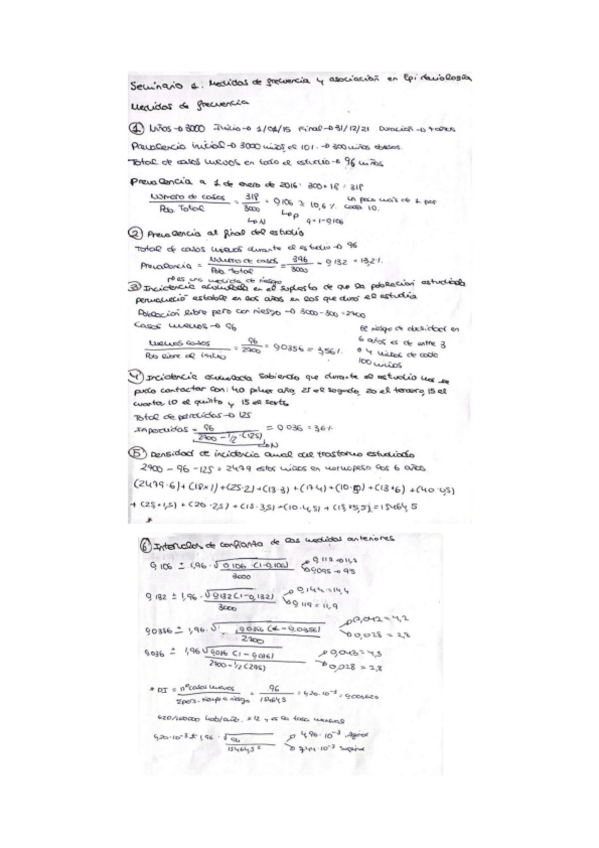 Seminario 1: Medidas de frecuencia y asociación en Epidemiología
Medidas de frecuencia
① Niños → 3000 Inicio → 1/01/15 Final → 31/12/21 Duración →
Prevalencia inicial → 3000 niños el 10% → 300 niños obesos.
Total de casos nuevos en todo el estudio → 96 niños
Prevalencia a 1 de enero de 2016: 300+18 = 318
Número de casos / Pob. Total = 318 / 3000 = 0,106 ≈ 10,6%
un poco más de 1 por cada 10.
↳ N ↳ p q = 1-0,106
② Prevalencia al final del estudio
Total de casos nuevos durante el estudio → 96
Prevalencia = Número de casos / Pob. Total = 396 / 3000 = 0,132 = 13,2%
es una medida de riesgo
③ Incidencia acumulada en el supuesto de que la población estudiada
permaneció estable en los años en los que duró el estudio
Población libre pero con riesgo → 3000-300 = 2700
Casos nuevos → 96
Nuevos casos / Pob libre al inicio = 96 / 2700 = 0,0356 = 3,56%
el riesgo de obesidad en
6 años es de entre 3
o 4 niños de cada
100 niños
④ Incidencia acumulada sabiendo que durante el estudio no se
pudo contactar con: 40 primer año, 25 el segundo, 20 el tercero, 15 el
cuarto, 10 el quinto y 15 el sexto
Total de pérdidas → 125
= 96 / 2700 - 1/2 · (125) = 0,036 = 3,6%
↳ N
⑤ Densidad de incidencia anual del trastorno estudiado
2700 - 96 - 125 = 2479 estos niños en normopeso los 6 años
(2479·6) + (18×1) + (25·2) + (13·3) + (17·4) + (10·5) + (13·6) + (40·0,5)
+ (25·1,5) + (20·2,5) + (15·3,5) + (10·4,5) + (15·5,5) = 15464,5
*
⑥ Intervalos de confianza de las medidas anteriores
0,106 ± 1,96 · √0,106·(1-0,106) / 3000
0,132 ± 1,96 · √0,132(1-0,132) / 3000
0,144 = 14,4
0,119 = 11,9
0,0356 ± 1,96 · √0,0356(1-0,0356) / 2700
0,042 = 4,2
0,028 = 2,8
0,036 ± 1,96 √0,036(1-0,036)
0,043 = 4,3
0,028 = 2,8
* DI = nº casos nuevos / = 96 / 15464,5 =